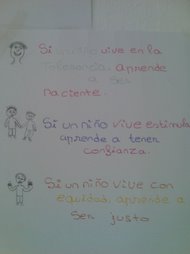 Si un niño vive en la
tolerancia, aprende
a ser
paciente.
Si un niño vive estimula
aprende a tener
confianza.
Si un niño vive con
equidad, aprende a
ser justo